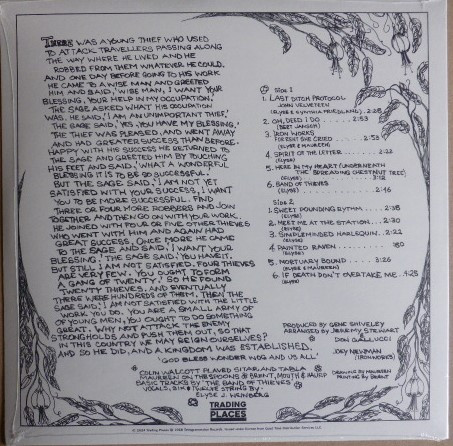 THERE WAS A YOUNG THIEF WHO USED
TO ATTACK TRAVELLERS PASSING ALONG
THE WAY WHERE HE LIVED AND HE
ROBBED FROM THEM WHATEVER HE COULD.
AND ONE DAY BEFORE GOING TO HIS WORK
HE CAME TO A WISE MAN AND GREETED
HIM AND SAID, 'WISE MAN, I WANT YOUR
BLESSING, YOUR HELP IN MY OCCUPATION.'
THE SAGE ASKED WHAT HIS OCCUPATION
WAS. HE SAID, 'I AM AN UNIMPORTANT THIEF.'
THE SAGE SAID, 'YES, YOU HAVE MY BLESSING.'
THE THIEF WAS PLEASED, AND WENT AWAY
AND HAD GREATER SUCCESS THAN BEFORE.
HAPPY WITH HIS SUCCESS HE RETURNED TO
THE SAGE AND GREETED HIM BY TOUCHING
HIS FEET AND SAID, 'WHAT A WONDERFUL
BLESSING IT IS TO BE SO SUCCESSFUL.'
BUT THE SAGE SAID, 'I AM NOT YET
SATISFIED WITH YOUR SUCCESS, I WANT
YOU TO BE MORE SUCCESSFUL. FIND
THREE OR FOUR MORE ROBBERS AND JOIN
TOGETHER AND THEN GO ON WITH YOUR WORK.'
HE JOINED WITH FOUR OR FIVE OTHER THIEVES
WHO WENT WITH HIM AND AGAIN HAD
GREAT SUCCESS. ONCE MORE HE CAME
TO THE SAGE AND SAID, 'I WANT YOUR
BLESSING.' THE SAGE SAID, 'YOU HAVE IT.
BUT STILL I AM NOT SATISFIED. FOUR THIEVES
ARE VERY FEW. YOU OUGHT TO FORM
A GANG OF TWENTY.' SO HE FOUND
TWENTY THIEVES, AND EVENTUALLY
THERE WERE HUNDREDS OF THEM. THEN THE
SAGE SAID, 'I AM NOT SATISFIED WITH THE LITTLE
WORK YOU DO. YOU ARE A SMALL ARMY
OF YOUNG MEN, YOU OUGHT TO DO SOMETHING
GREAT. WHY NOT ATTACK THE ENEMY
STRONGHOLDS AND PUSH THEM OUT, SO THAT
IN THIS COUNTRY WE MAY REIGN OURSELVES?'
AND SO HE DID, AND A KINGDOM WAS ESTABLISHED.
'GOD BLESS WONDER WOG AND US ALL'
COLIN WALCOTT PLAYED SITAR AND TABLA
MAUREEN ON THE SPOONS & BRENT, MOUTH & HARP
BASIC TRACKS BY 'THE BAND OF THIEVES'
VOCALS, SIX & TWELVE STRING BY:
ELYSE J. WEINBERG
SIDE 1
1. LAST DITCH PROTOCOL
JOHN VELVETEEN
(ELYSE & SYNTHIA FRIEDLAND) . 2:28
2. OH, DEED I DO . . . . . 2:53
(BERT JANSCH)
3. IRON WORKS
FOR RENT SHE CRIED . . . . 2:53
(ELYSE & MAUREEN)
4. SPIRIT OF THE LETTER . . . 2:22
(ELYSE)
5. HERE IN MY HEART (UNDERNEATH
THE SPREADING CHESTNUT TREE)
(ELYSE)
6. BAND OF THIEVES . . . . 2:46
SIDE 2
1. SWEET POUNDING RYTHM . . . 2:38
(ELYSE)
2. MEET ME AT THE STATION . . . 2:30
(ELYSE)
3. SIMPLEMINDED HARLEQUIN . . . 2:22
(ELYSE)
4. PAINTED RAVEN . . . . .
(ELYSE)
5. MORTUARY BOUND . . . . 3:26
(ELYSE & MAUREEN)
6. IF DEATH DON'T OVERTAKE ME . 4:25
(ELYSE)
PRODUCED BY GENE SHIVELEY
ARRANGED BY JEREMY STEWART
&
DON GALLUCCI
JOEY NEWMAN
(IRONWORKS)
DRAWING BY MAUREEN
PRINTING BY BRENT
TRADING
PLACES